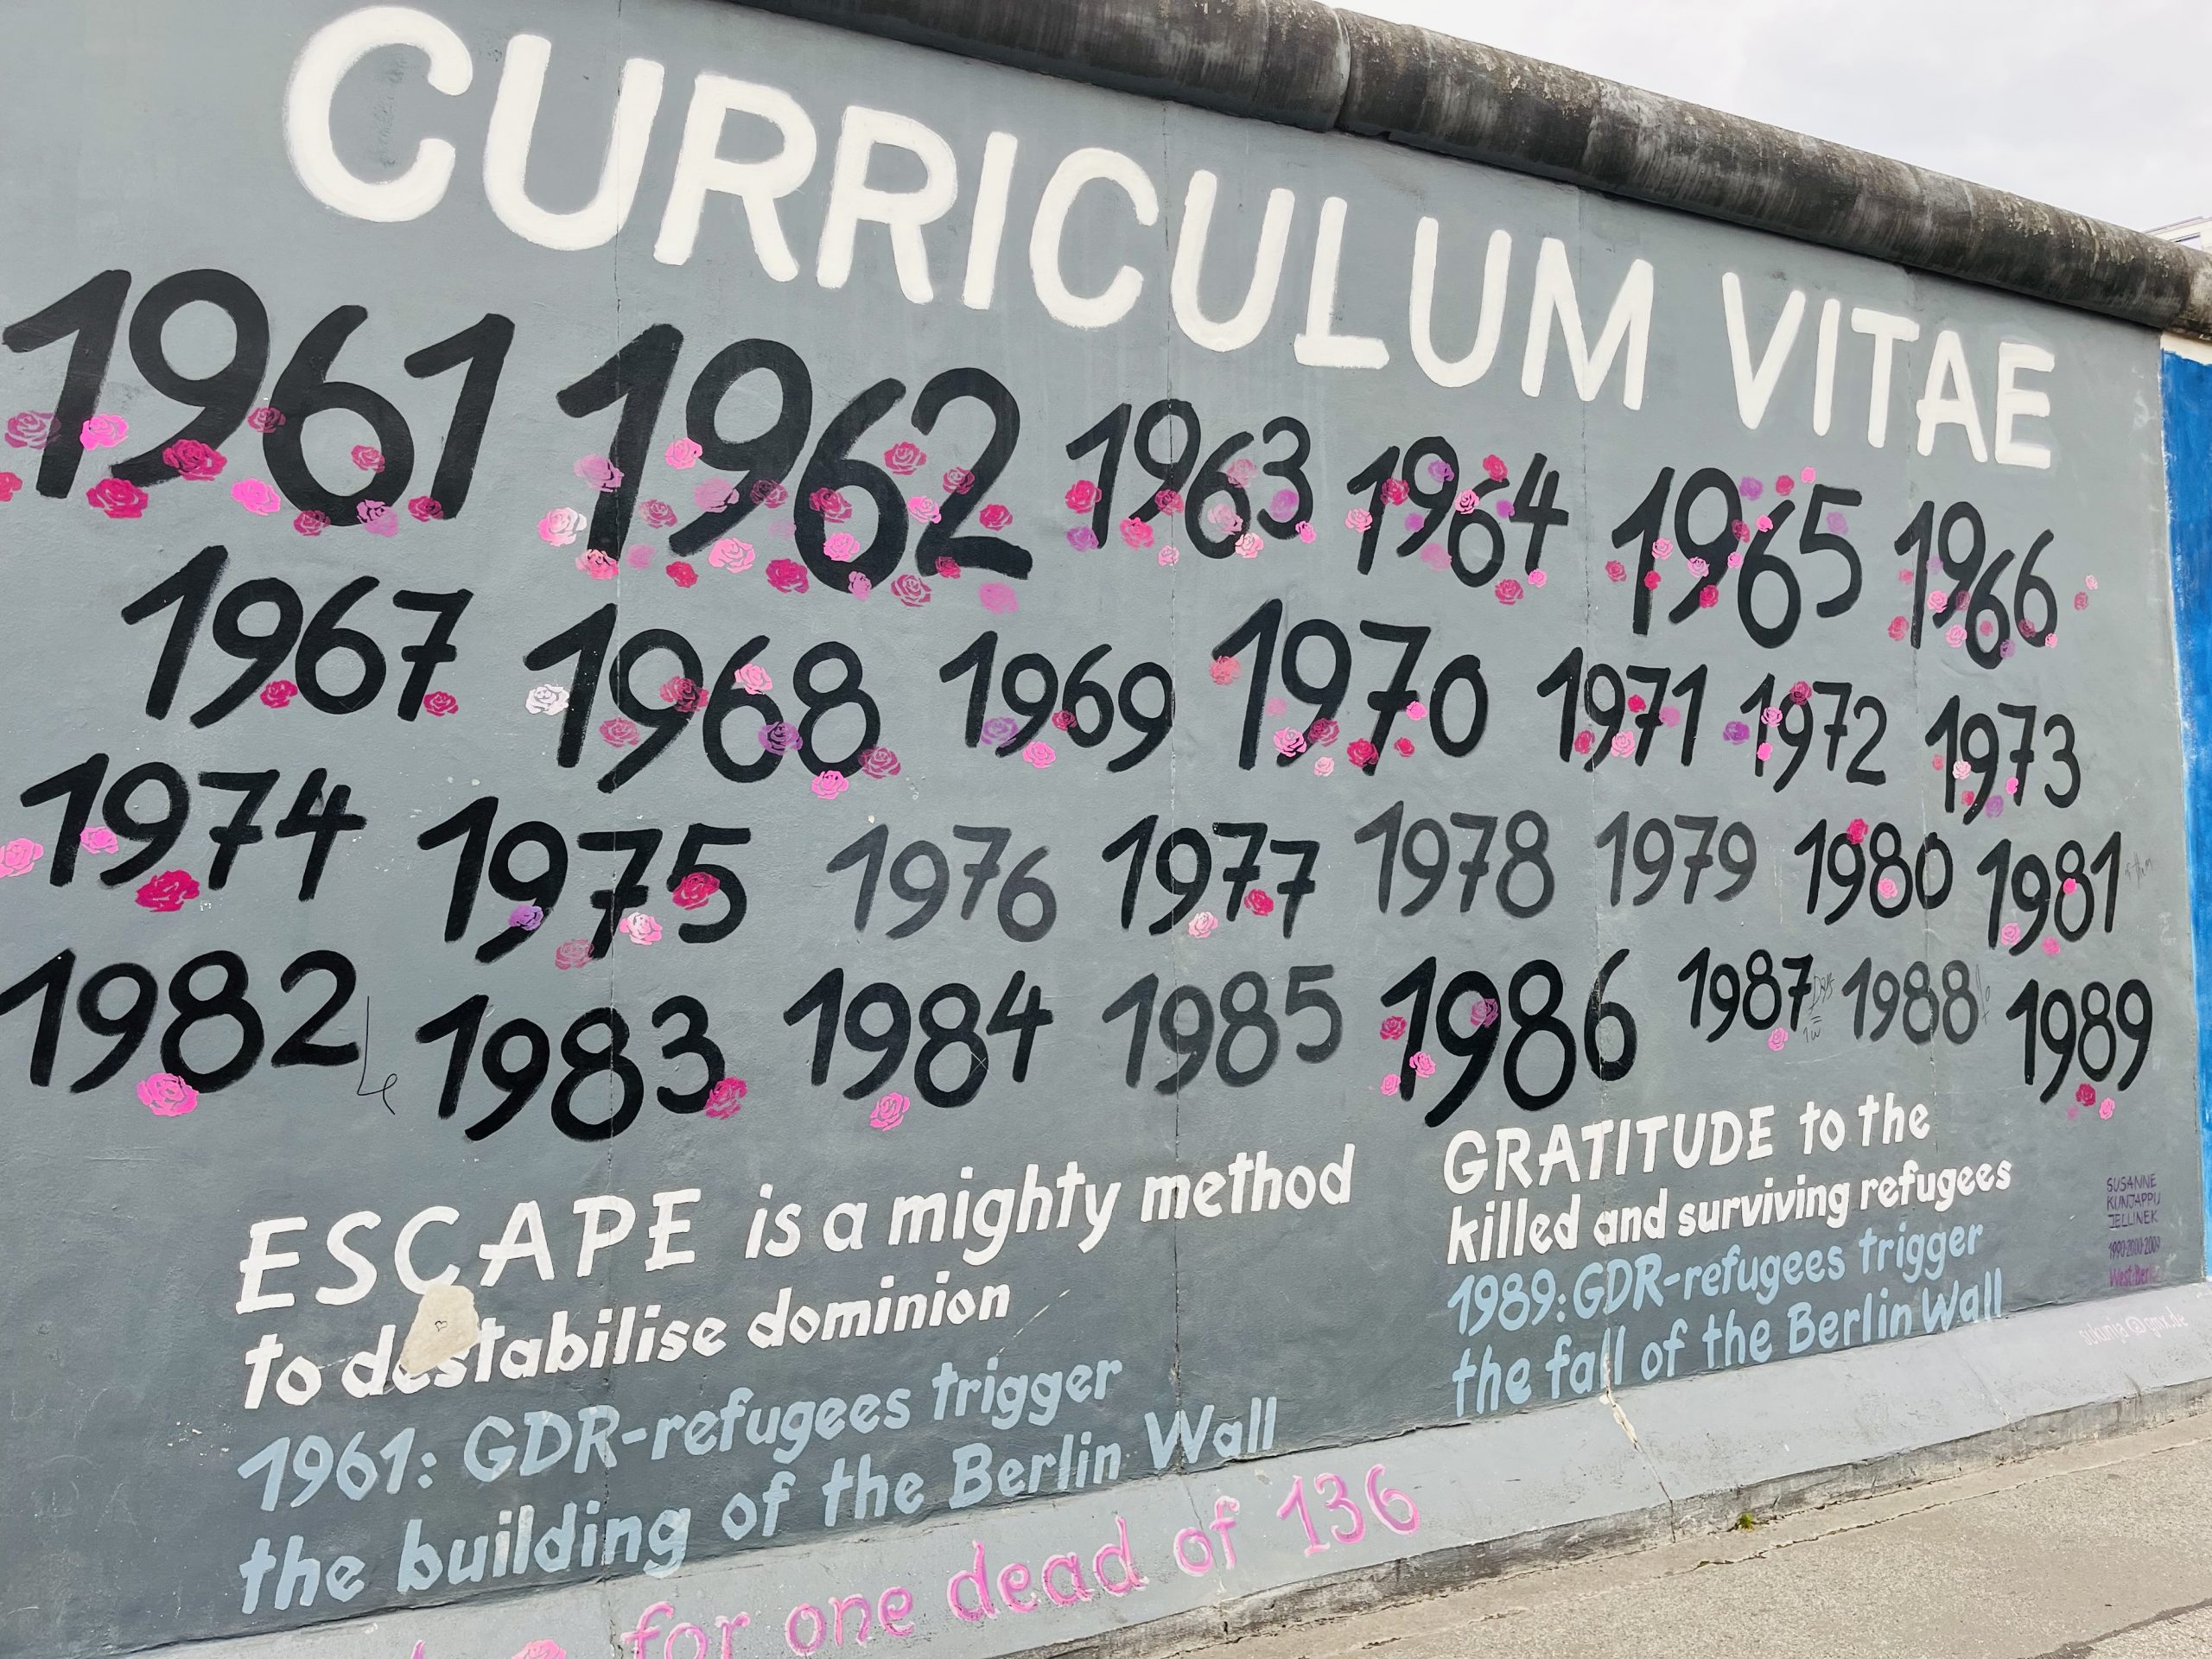 CURRICULUM VITAE
1961 1962 1963 1964 1965 1966
1967 1968 1969 1970 1971 1972 1973
1974 1975 1976 1977 1978 1979 1980 1981
1982 1983 1984 1985 1986 1987 1988 1989
ESCAPE is a mighty method
to destabilise dominion
1961: GDR-refugees trigger
the building of the Berlin Wall
GRATITUDE to the
killed and surviving refugees
1989: GDR-refugees trigger
the fall of the Berlin Wall
SUSANNE
KUNJAPPU
JELLINEK
1990-2000-2009
for one dead of 136